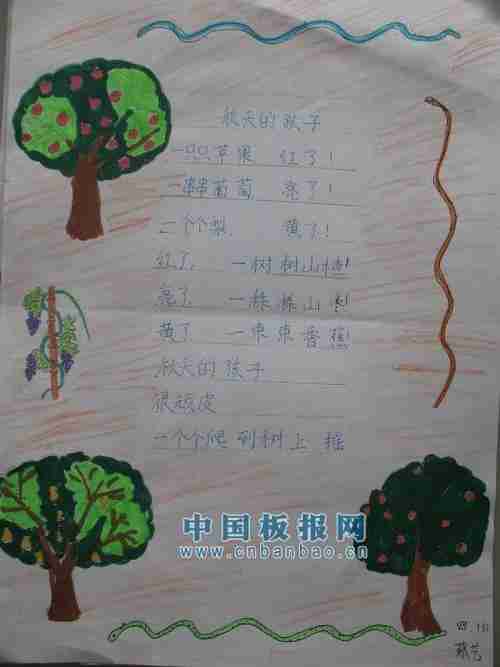 秋天的孩子
一只只苹果 红了！
一串串葡萄 亮了！
一个个梨 黄了！
红了 一树树山楂！
亮了 一株株山
黄了 一束束香蕉！
秋天的孩子
很顽皮
一个个爬到树上 摇
中国板报网
www.cnbanbao.cn